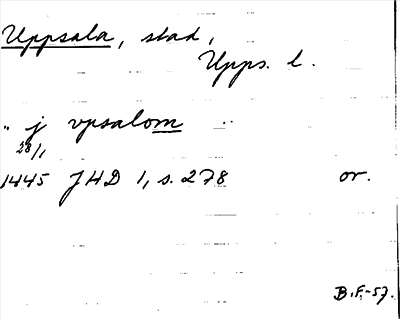 Uppsala, stad,
Upps. l.
" j vpsalom "
28/1
1445 JHD 1, s. 278 or.
B.F.-57.